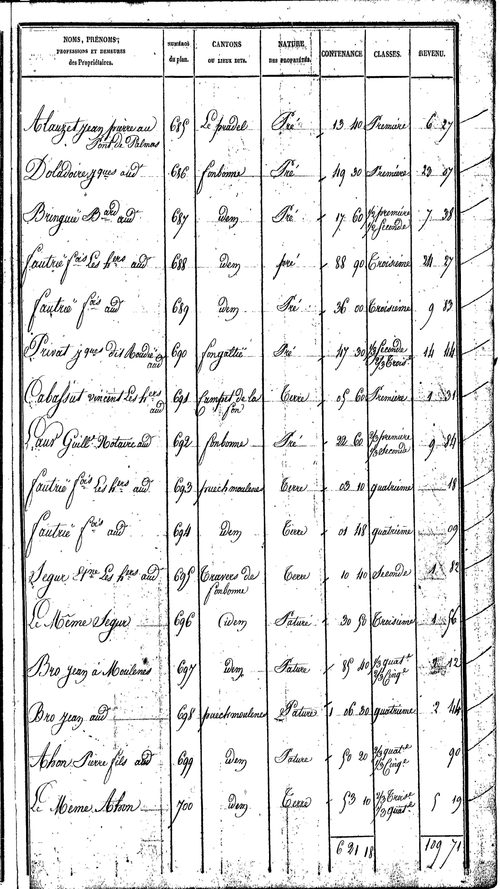 NOMS, PRÉNOMS, PROFESSIONS ET DEMEURES des Propriétaires. NUMÉRO du plan. CANTONS OU LIEUX DITS. NATURE DES PROPRIÉTÉS. CONTENANCE CLASSES. REVENU.
Alauzet jean pierre au 685 Le pradel Pré 13 40 Première 6 27
Pont de Palmas
Doladoire jques aud 686 fonbonne Pré 49 30 Première 23 07
Bringuié Bard aud 687 idem Pré 17 60 1/2 première 1/2 Seconde 7 38
fautrië fois Les hers aud 688 idem pré 88 90 Troisieme 24 27
fautrië fois aud 689 idem Pré 36 00 Troisieme 9 83
Privat jques dit Roudié aud 690 fongaltié Pré 47 30 1/3 Seconde 2/3 Trois. 14 44
Cabassut vincent Les hers aud 691 Camp de la fon Terre 05 60 Première 1 31
Laur Guillme Notaire aud 692 fonbonne Pré 22 60 2/3 première 1/3 Seconde 9 84
fautrië fois Les hers aud 693 puech moulenes Terre 03 10 quatrieme 18
fautrië fois aud 694 idem Terre 01 48 quatrième 09
Segur Etne Les hers aud 695 Travers de fonbonne Terre 10 40 Seconde 1 82
Le Même Segur 696 idem Pature 30 50 Troisieme 1 56
Bro jean à Moulenes 697 idem Pature 85 40 1/3 quate 2/3 Cinqe 2 12
Bro jean aud 698 puech moulenes Pature 1 06 30 quatrieme 2 44
Ahon Pierre fils aud 699 idem Pature 50 20 2/3 quate 1/3 Cinqe 90
Le Meme Ahon 700 idem Terre 53 10 2/3 Troise 1/3 quate 5 19
6 21 18 109 71